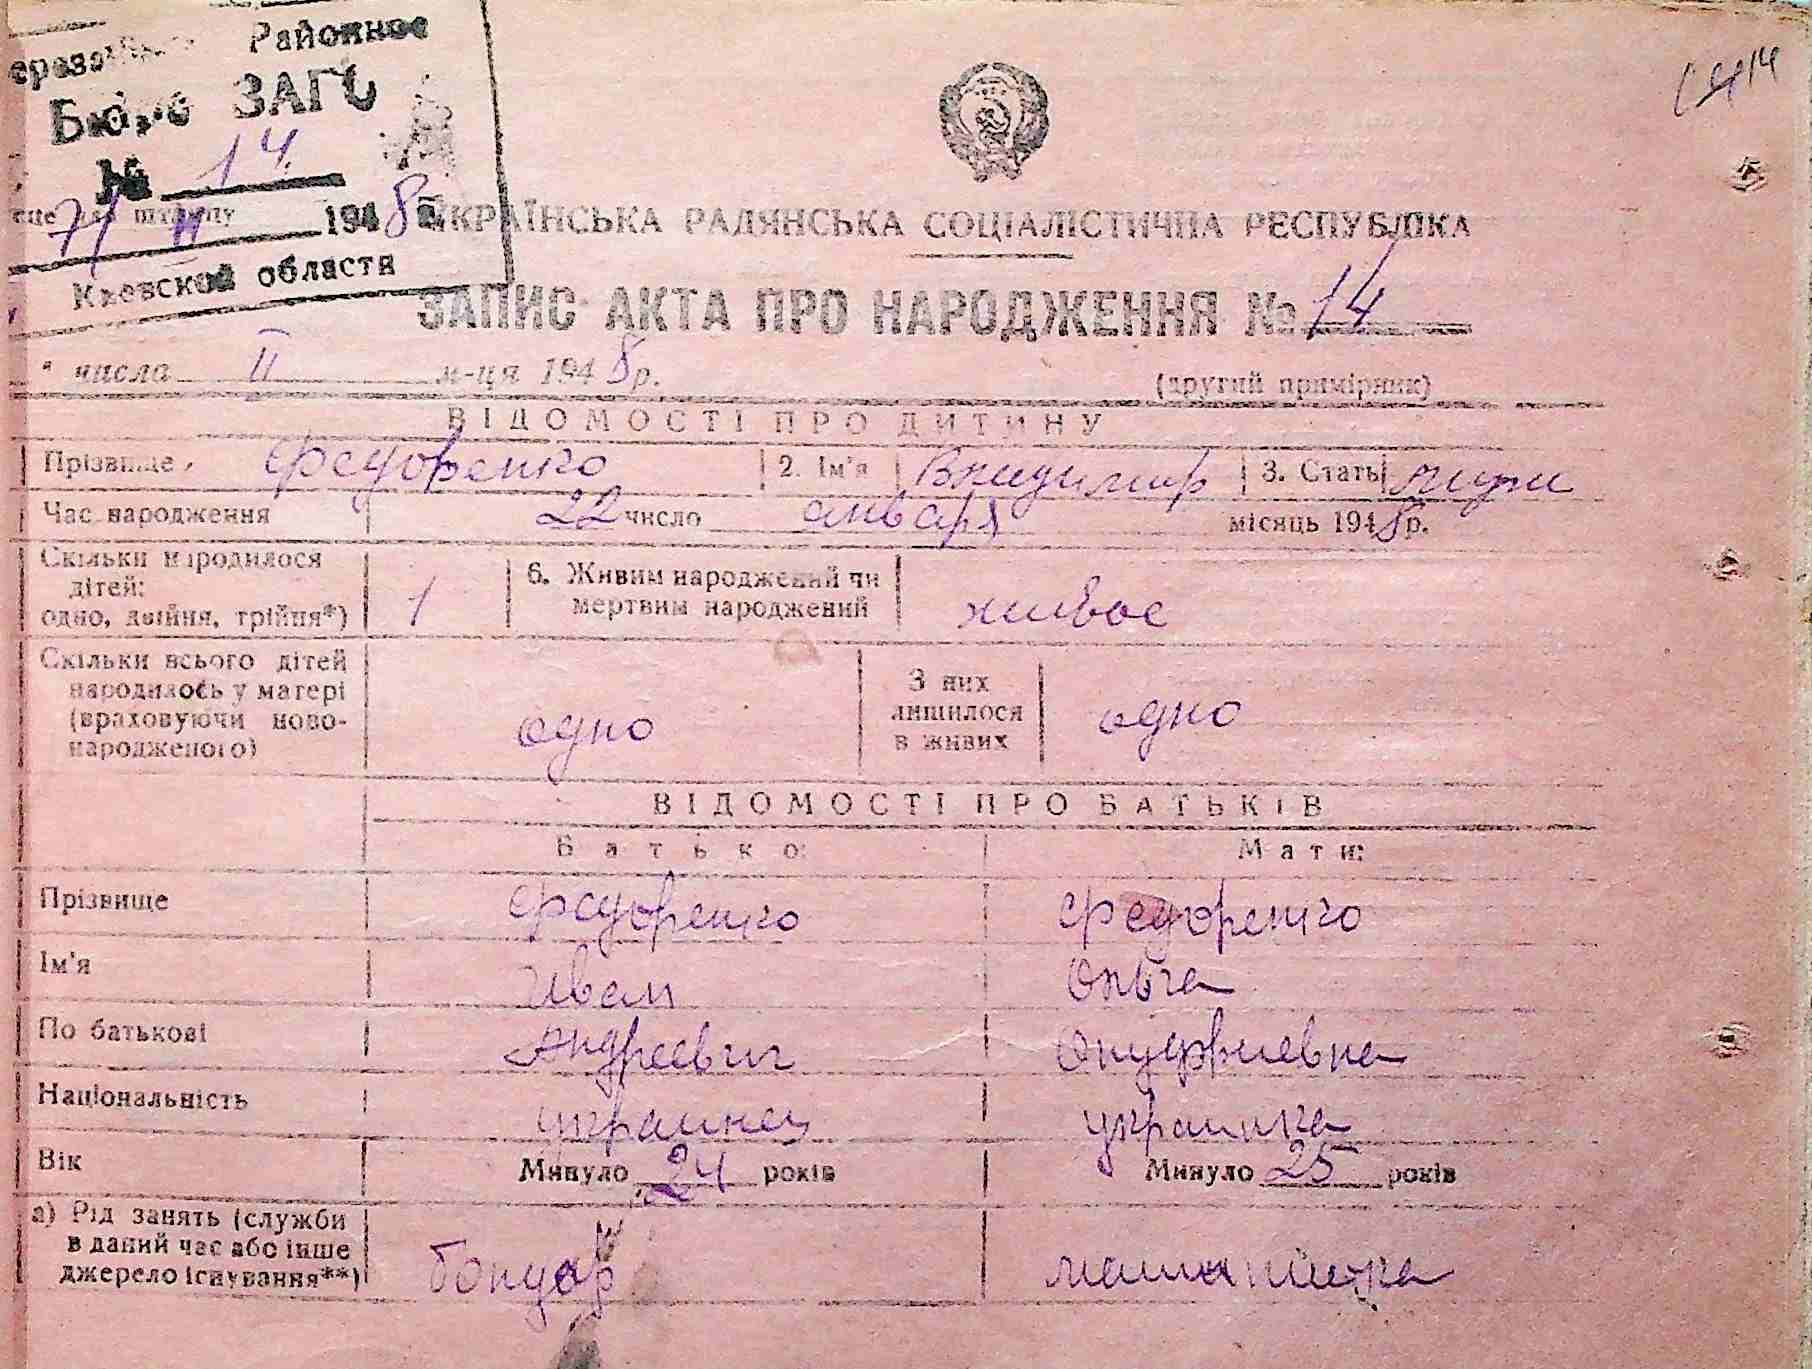 Районное
Бюро ЗАГС
№ 14.
7/II 1948 г.
Киевской области
УКРАЇНСЬКА РАДЯНСЬКА СОЦІАЛІСТИЧНА РЕСПУБЛІКА
ЗАПИС АКТА ПРО НАРОДЖЕННЯ № 14
" числа II м-ця 1948 р.
(другий примірник)
ВІДОМОСТІ ПРО ДИТИНУ
Прізвище Федоренко 2. Ім'я Владимир 3. Стать муж
Час народження 22 число января місяць 1948 р.
Скільки народилося
дітей:
одно, двійня, трійня*) 1
6. Живим народжений чи
мертвим народжений живое
Скільки всього дітей
народилось у матері
(враховуючи ново-
народженого) одно
З них
лишилося
в живих одно
ВІДОМОСТІ ПРО БАТЬКІВ
Батько: Мати:
Прізвище Федоренко Федоренко
Ім'я Иван Ольга
По батькові Андреевич Онуфриевна
Національність украинец украинка
Вік Минуло 24 років Минуло 25 років
а) Рід занять (служби
в даний час або інше
джерело існування**) бондар машинистка